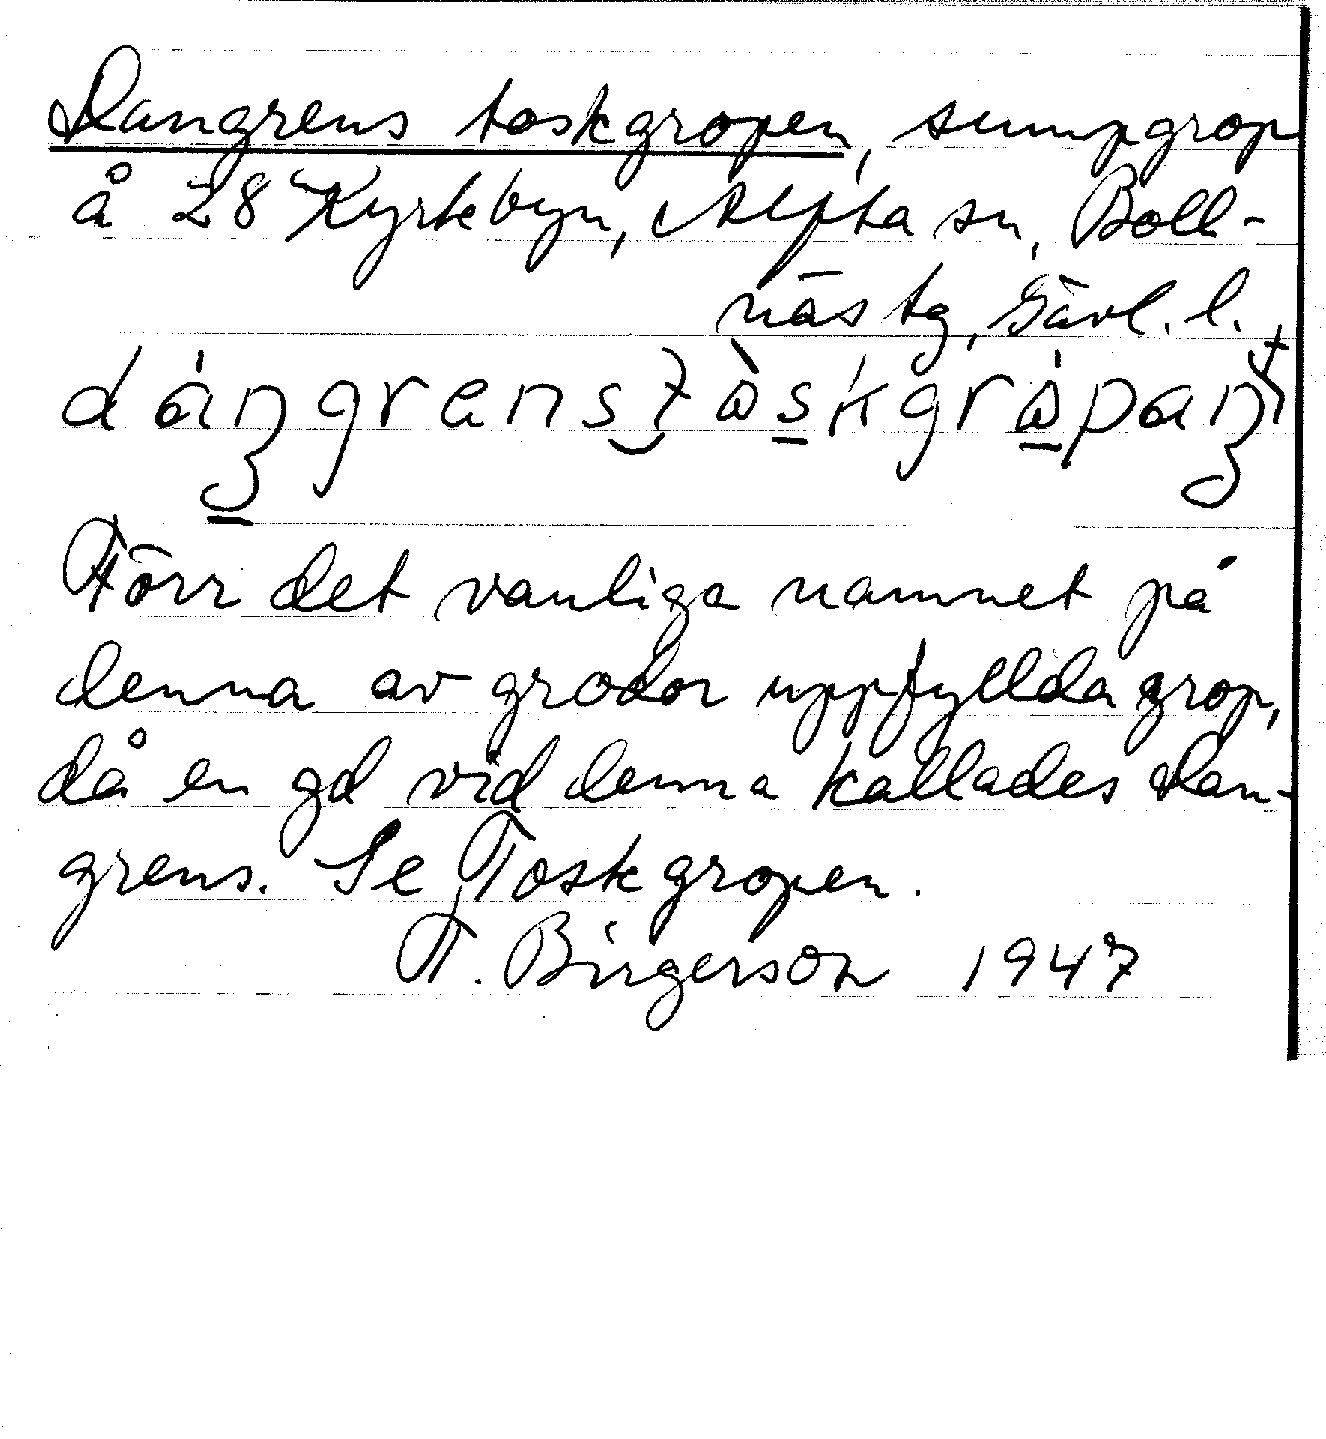 Dangrens toskgropen, sumpgrop
å 28 Kyrkbyn, Alfta sn, Boll-
näs tg, Gävl. l.
Förr det vanliga namnet på
denna av grodor uppfyllda grop,
då en gd vid denna kallades Dan-
grens. Se Toskgropen.
T. Birgerson 1947